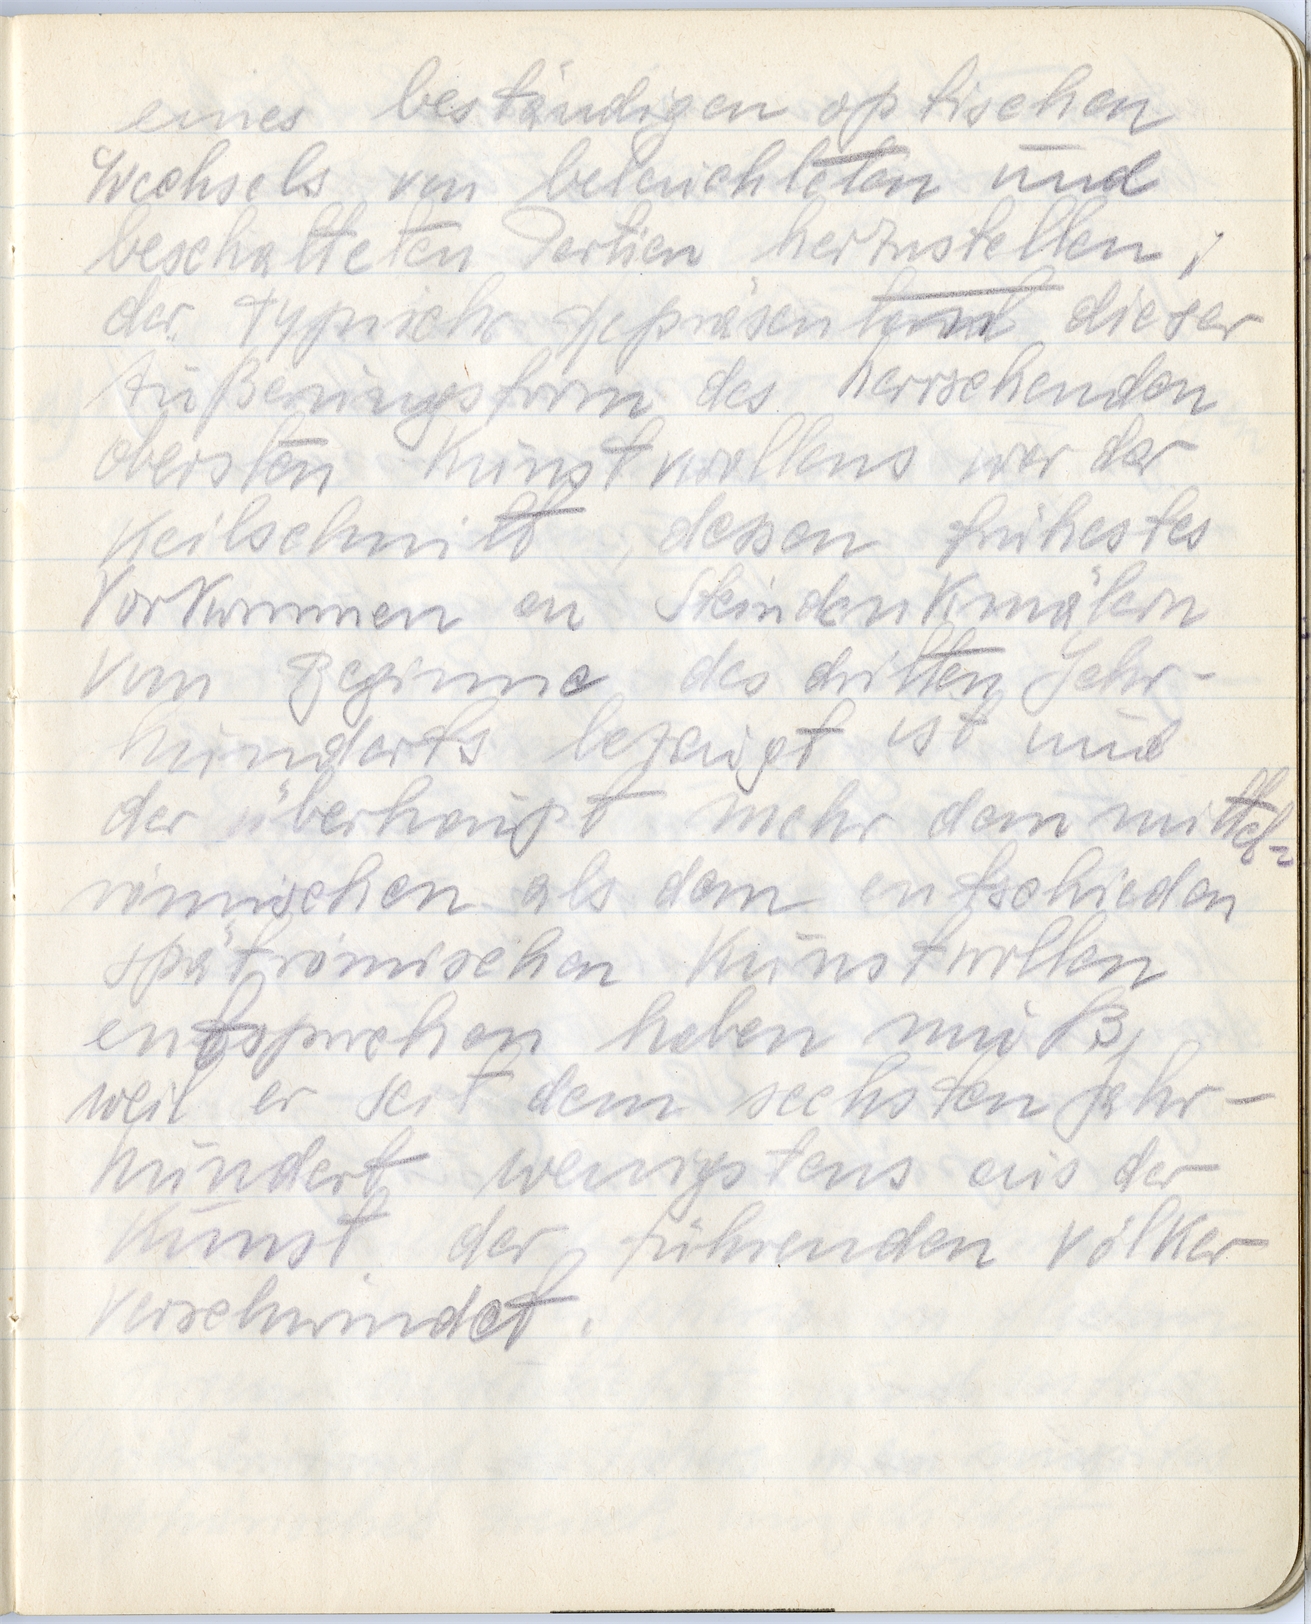 eines beständigen optischen
Wechsels von beleuchteten und
beschatteten Partien herzustellen;
der typische Repräsentant dieser
Äußerungsform des herrschenden
obersten Kunstwollens war der
Keilschnitt, dessen frühestes
Vorkommen an Steindenkmälern
vom Beginne des dritten Jahr-
hunderts bezeugt ist und
der überhaupt mehr dem mittel-
römischen als dem entschieden
spätrömischen Kunstwollen
entsprochen haben muß,
weil er seit dem sechsten Jahr-
hundert wenigstens aus der
Kunst der führenden Völker
verschwindet.